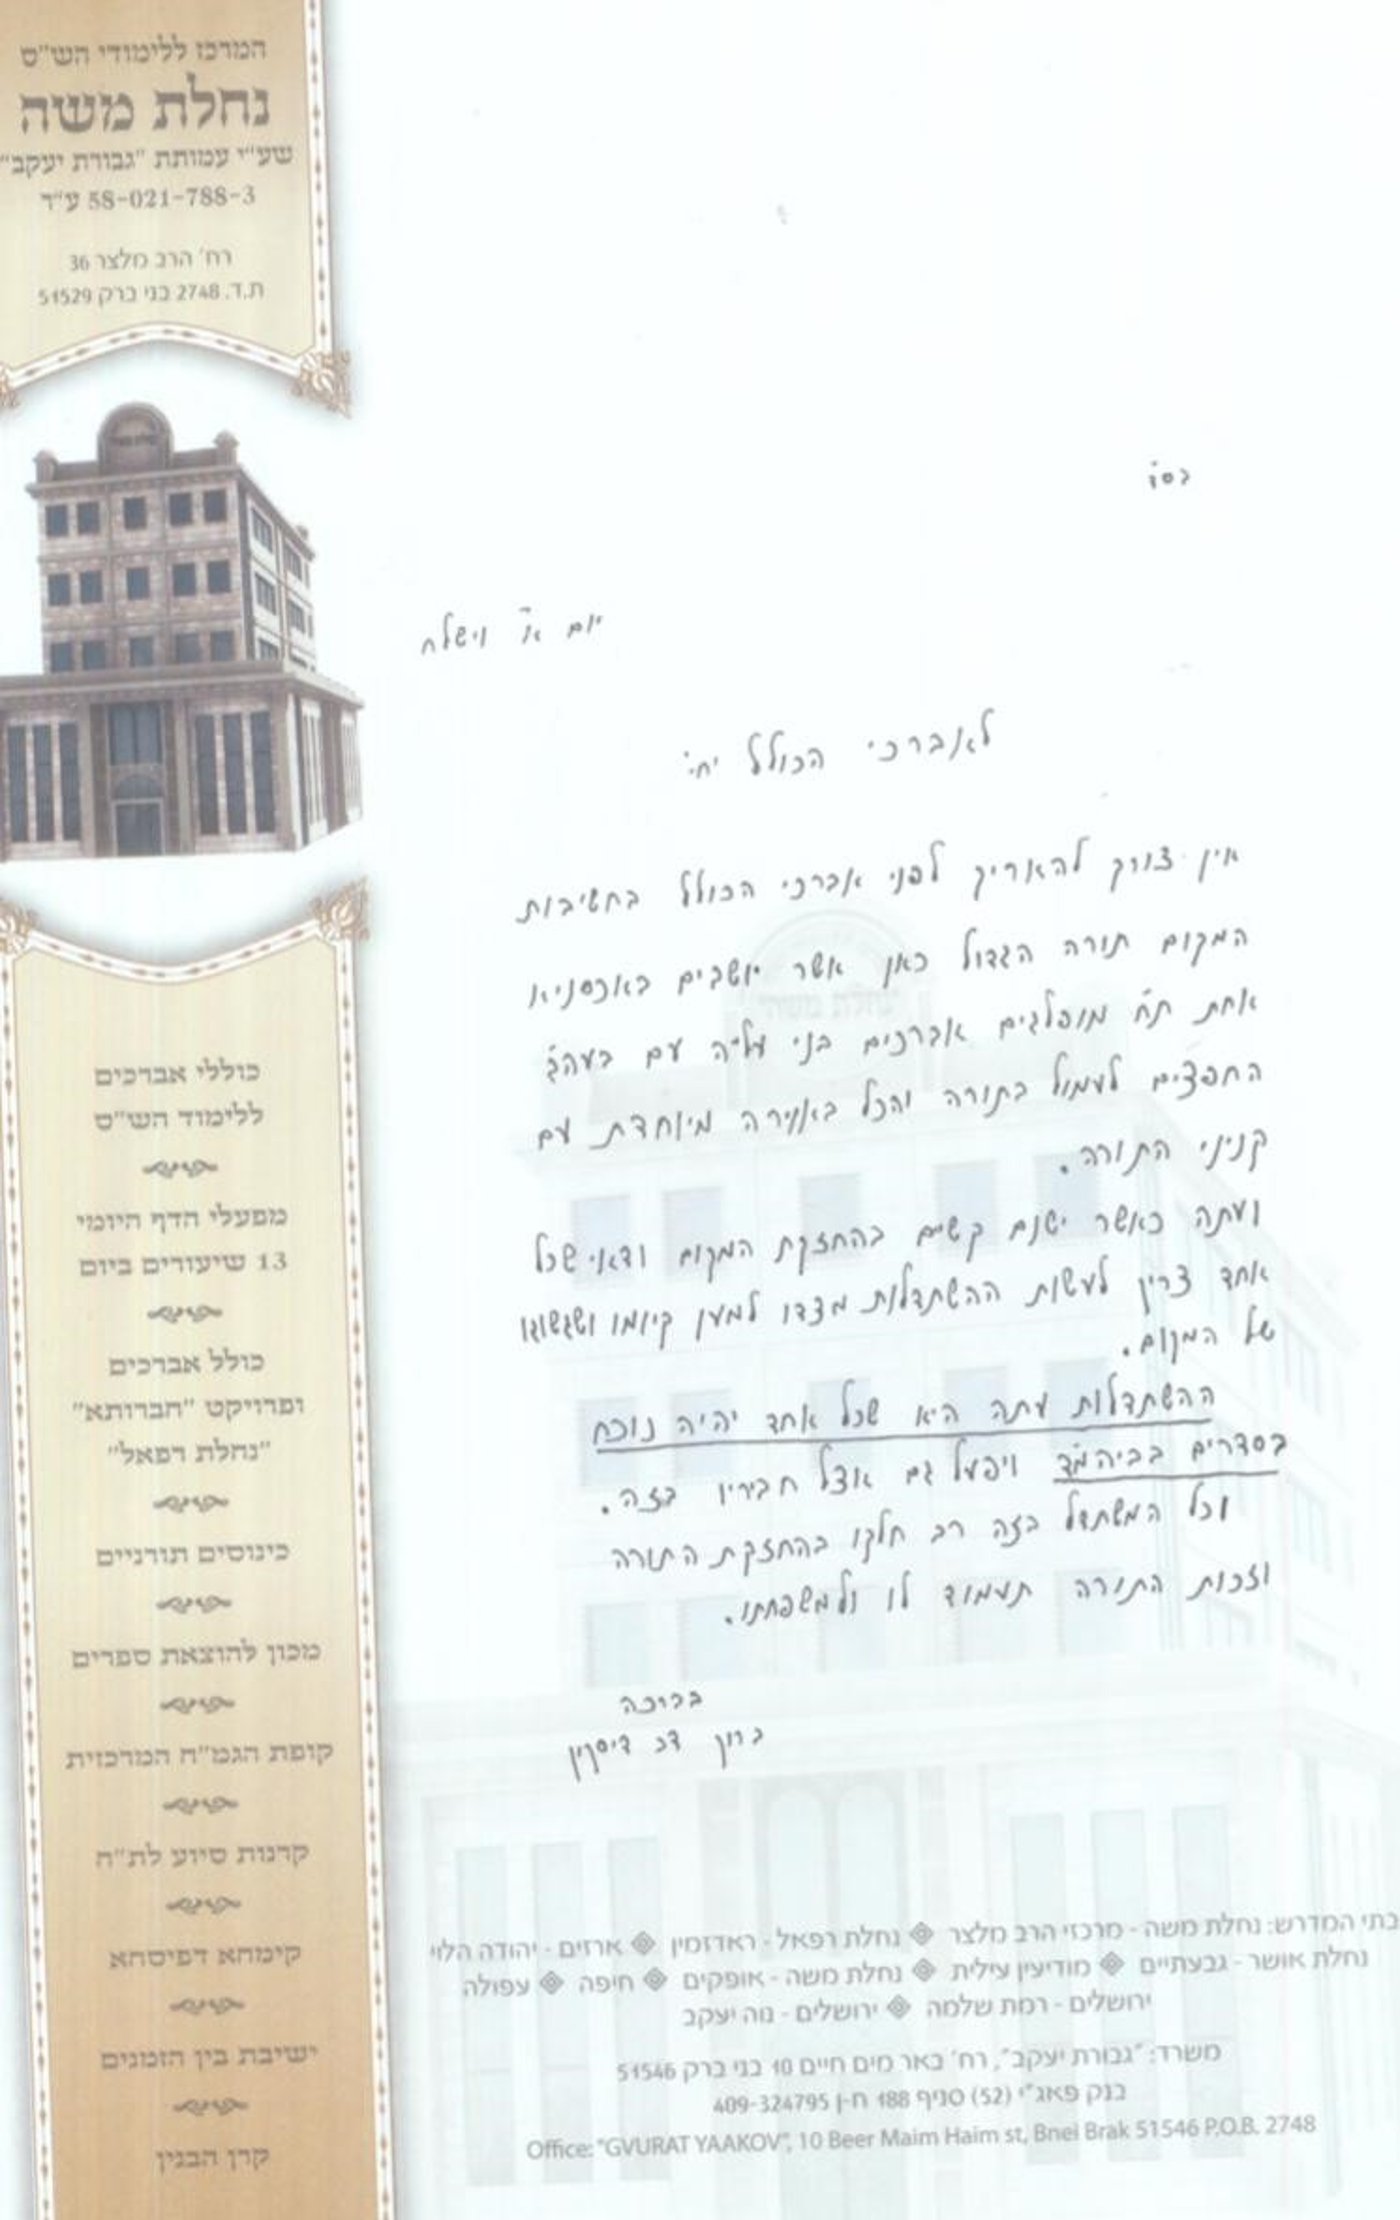 המרכז ללימודי הש"ס
נחלת משה
שע"י עמותת "גבורת יעקב"
ע"ר 58-021-788-3
רח' הרב מלצר 36
ת.ד. 2748 בני ברק 51529
בס"ד
יום א' וישלח
לאברכי הכולל יחי'
אין צורך להאריך לפני אברכי הכולל בחשיבות
המקום תורה הגדול כאן אשר יושבים באכסניא
אחת ת"ח מופלגים אברכים בני עליה עם בעה"ב
החפצים לעמול בתורה והכל באוירה מיוחדת עם
קניני התורה.
ועתה כאשר ישנם קשיים בהחזקת המקום ודאי שכל
אחד צריך לעשות ההשתדלות מצדו למען קיומו ושגשוגו
של המקום.
ההשתדלות עתה היא שכל אחד יהיה נוכח
בסדרים בביהמ"ד ויפעל גם אצל חביריו בזה.
וכל המשתדל בזה רב חלקו בהחזקת התורה
וזכות התורה תעמוד לו ולמשפחתו.
בברכה
ברוך דב דיסקין
כוללי אברכים
ללימוד הש"ס
מפעלי הדף היומי
13 שיעורים ביום
כולל אברכים
ופרויקט "חברותא"
"נחלת רפאל"
כינוסים תורניים
מכון להוצאת ספרים
קופת הגמ"ח המרכזית
קרנות סיוע לת"ח
קימחא דפיסחא
ישיבת בין הזמנים
קרן הבנין
בתי המדרש: נחלת משה - מרכזי הרב מלצר ◈ נחלת רפאל - ראדזמין ◈ ארזים - יהודה הלוי
נחלת אושר - גבעתיים ◈ מודיעין עילית ◈ נחלת משה - אופקים ◈ חיפה ◈ עפולה
ירושלים - רמת שלמה ◈ ירושלים - נוה יעקב
משרד: "גבורת יעקב", רח' באר מים חיים 10 בני ברק 51546
בנק פאג"י (52) סניף 188 ח-ן 409-324795
Office: "GVURAT YAAKOV", 10 Beer Maim Haim st, Bnei Brak 51546 P.O.B. 2748